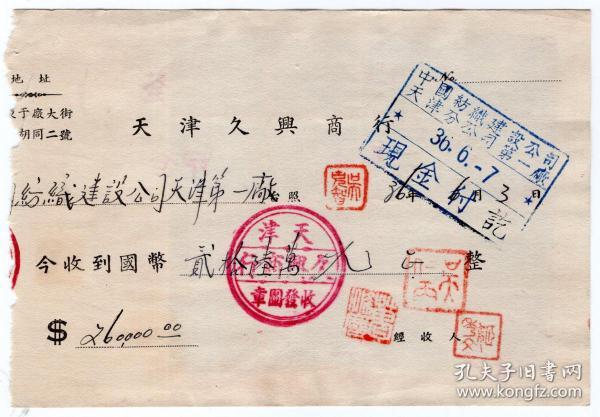 地址
于廠大街
胡同二號
No.
天津久興商行
中國紡織建設公司
天津分公司第一廠
36.6.-7
現金付訖
紡織建設公司天津第一廠
台照
36年6月3日
今收到國幣 貳拾陸萬元正 整
天津
久興商行
收發圖章
$ 260,000.00
經收人
孔夫子旧书网
www.kongfz.com